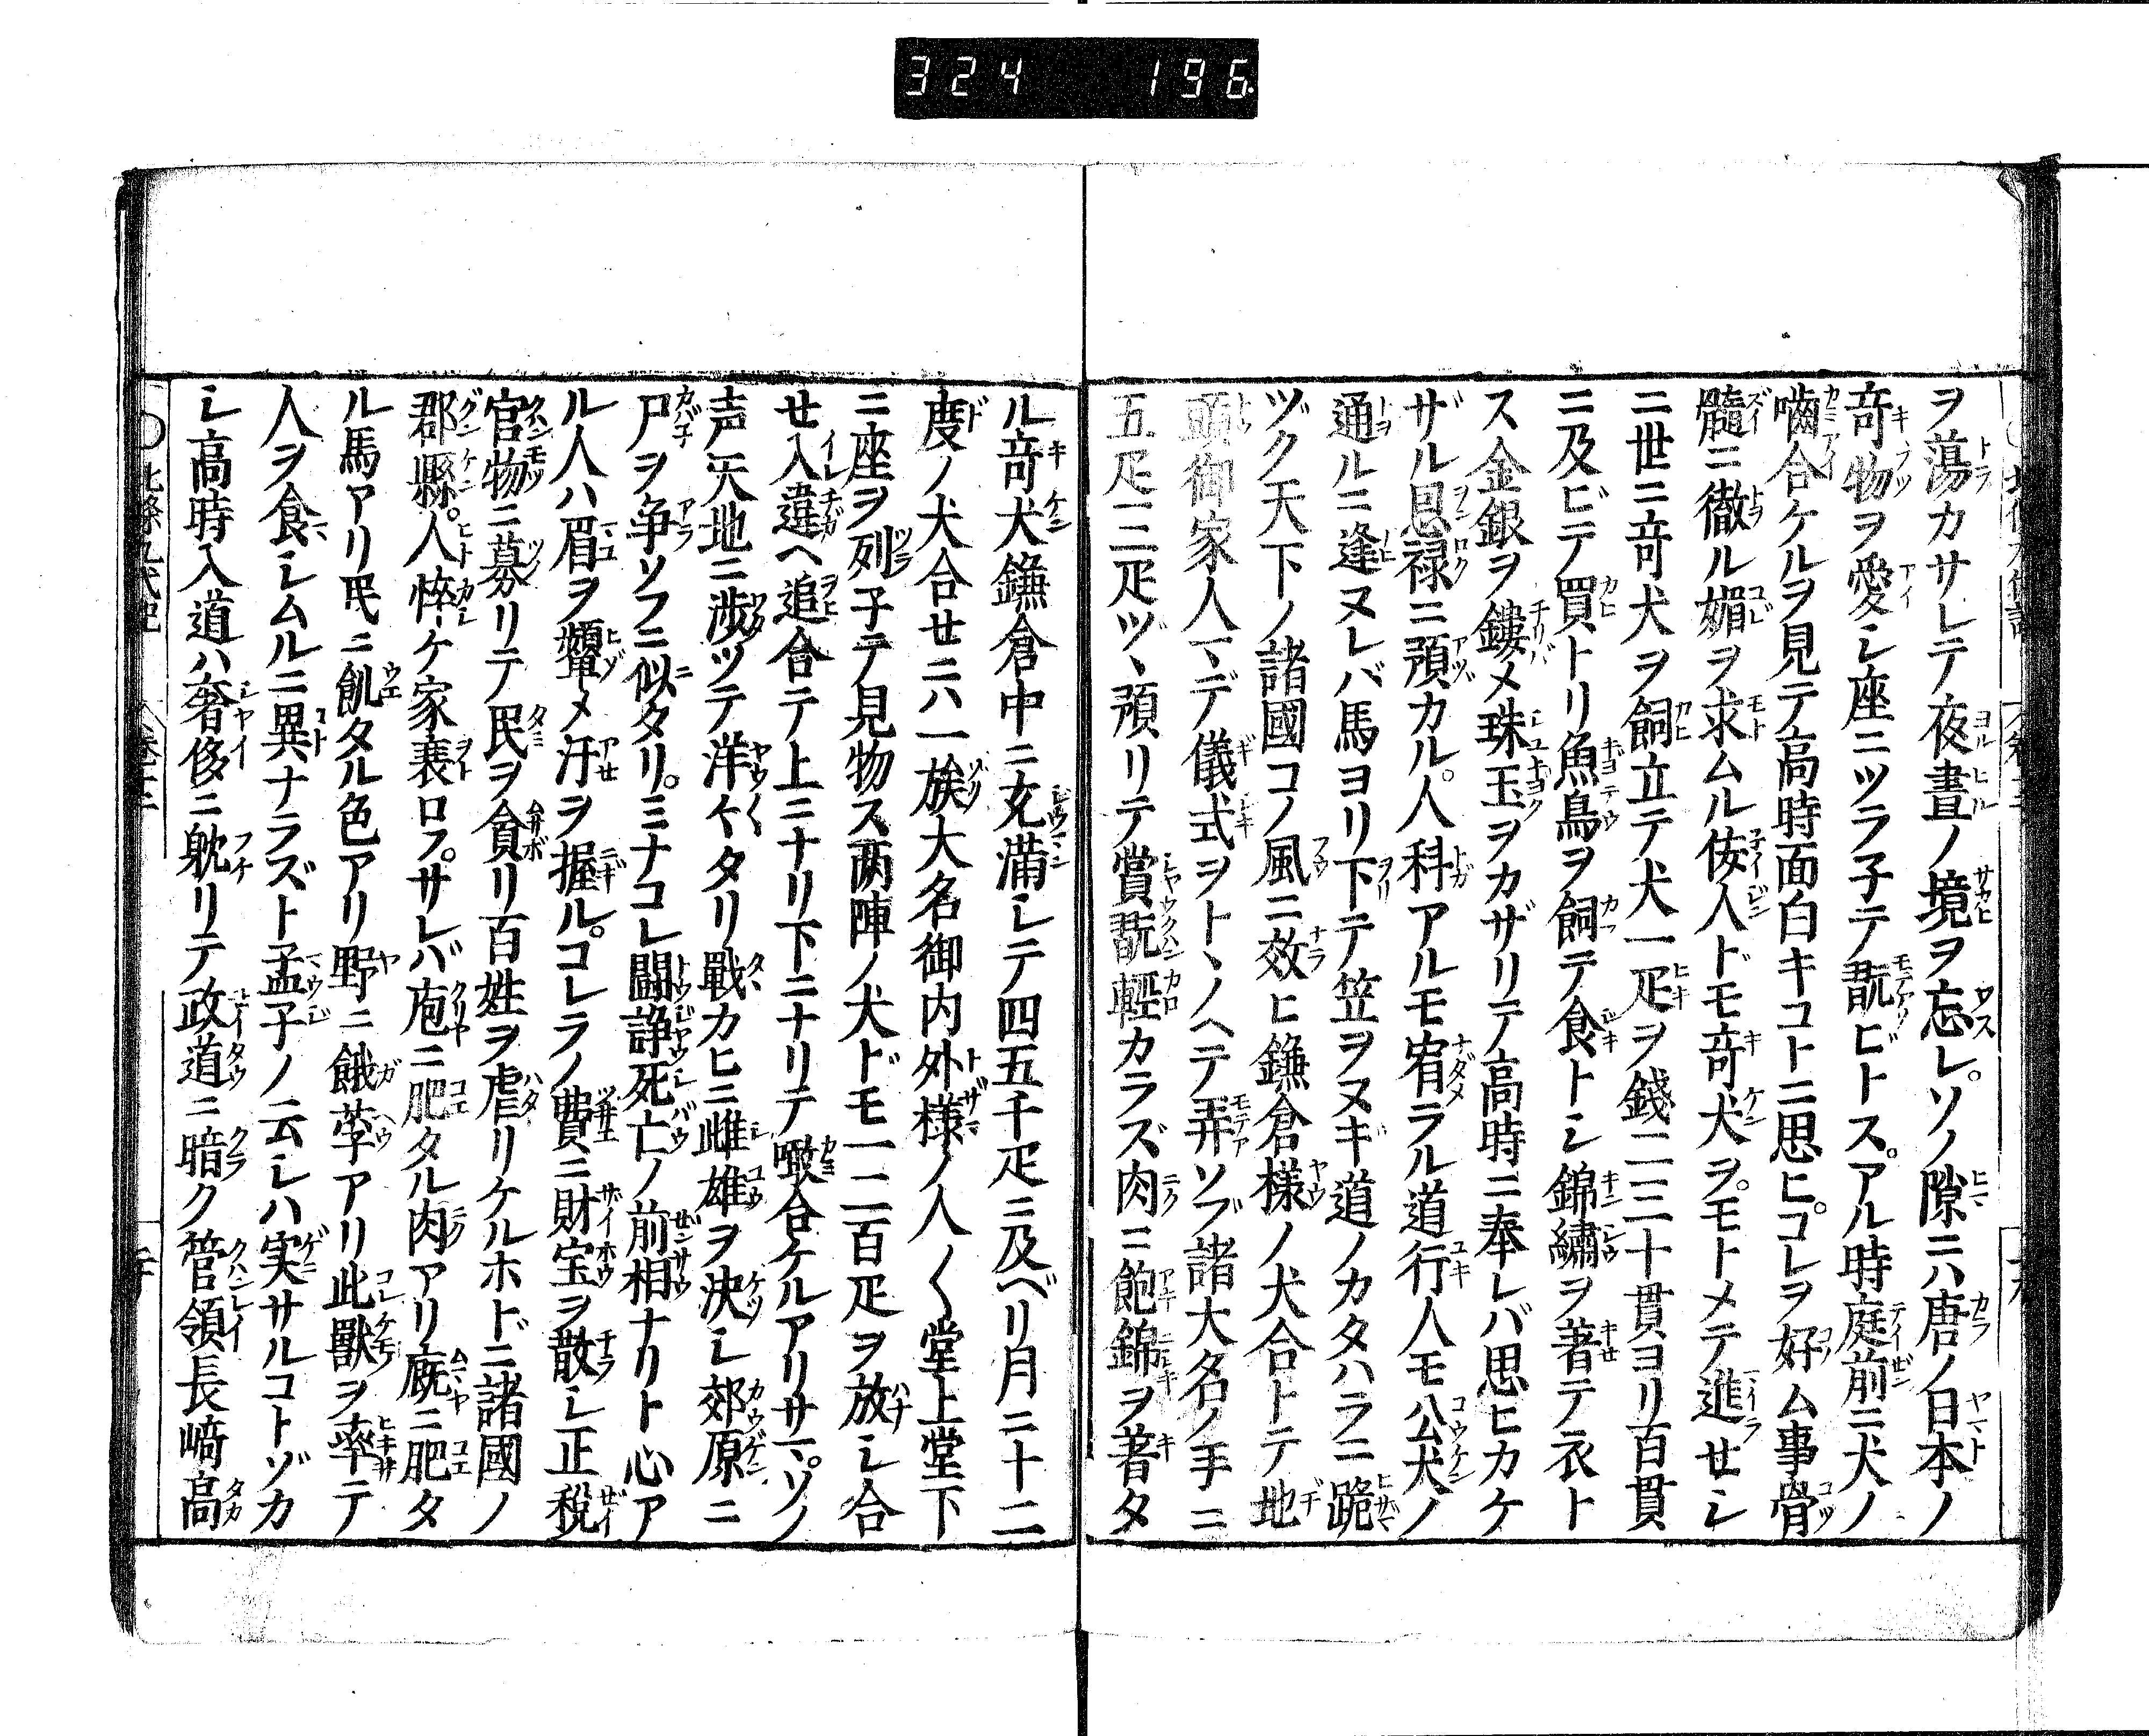 324 196
ヲ蕩カサレテ夜晝ノ境ヲ忘レ。ソノ隙ニハ唐ノ日本ノ
竒物ヲ愛シ座ニツラ子テ翫ビトス。アル時庭前ニ犬ノ
嚙合ケルヲ見テ高時面白キコトニ思ヒ。コレヲ好ム事骨
髓ニ徹ル媚ヲ求ムル侫人ドモ竒犬ヲ。モトメテ進セシ
ニ世ニ竒犬ヲ飼立テ犬一疋ヲ錢二三十貫ヨリ百貫
ニ及ビテ買トリ魚鳥ヲ飼テ食トシ錦繡ヲ著テ衣ト
ス金銀ヲ鏤メ珠玉ヲカザリテ高時ニ奉レバ思ヒカケ
ザル恩禄ニ預カル。人科アルモ宥ラル道行人モ公犬ノ
通ルニ逢ヌレバ馬ヨリ下テ笠ヲヌギ道ノカタハラニ跪
ヅク天下ノ諸國コノ風ニ效ヒ鎌倉樣ノ犬合トテ地
頭御家人マデ儀式ヲトヽノヘテ弄ソブ諸大名ノ手ニ
五疋三疋ヅヽ預リテ賞翫輕カラズ肉ニ飽錦ヲ著タ
ル竒犬鎌倉中ニ充滿シテ四五千疋ニ及ベリ月ニ十二
度ノ犬合せニハ一族大名御内外樣ノ人〱堂上堂下
ニ座ヲ列子テ見物ス兩陣ノ犬ドモ一二百疋ヲ放シ合
せ入違ヘ追合テ上ニナリ下ニナリテ噉合ケルアリサマ。ソノ
声天地ニ渉ツテ洋〻タリ戰カヒニ雌雄ヲ決シ郊原ニ
尸ヲ争ソフニ似タリ。ミナコレ闘諍死亡ノ前相ナリト心ア
ル人ハ眉ヲ顰メ汗ヲ握ル。コレラノ費ニ財宝ヲ散シ正税
官物ニ募リテ民ヲ貪リ百姓ヲ虐リケルホドニ諸國ノ
郡縣。人悴ケ家衰ロフ。サレバ庖ニ肥タル肉アリ廐ニ肥タ
ル馬アリ民ニ飢タル色アリ野ニ餓莩アリ此獸ヲ率テ
人ヲ食シムルニ異ナラズト孟子ノ云シハ実サルコトゾカ
シ高時入道ハ奢侈ニ耽リテ政道ニ暗ク管領長﨑高
〇北條九代記 卷十二